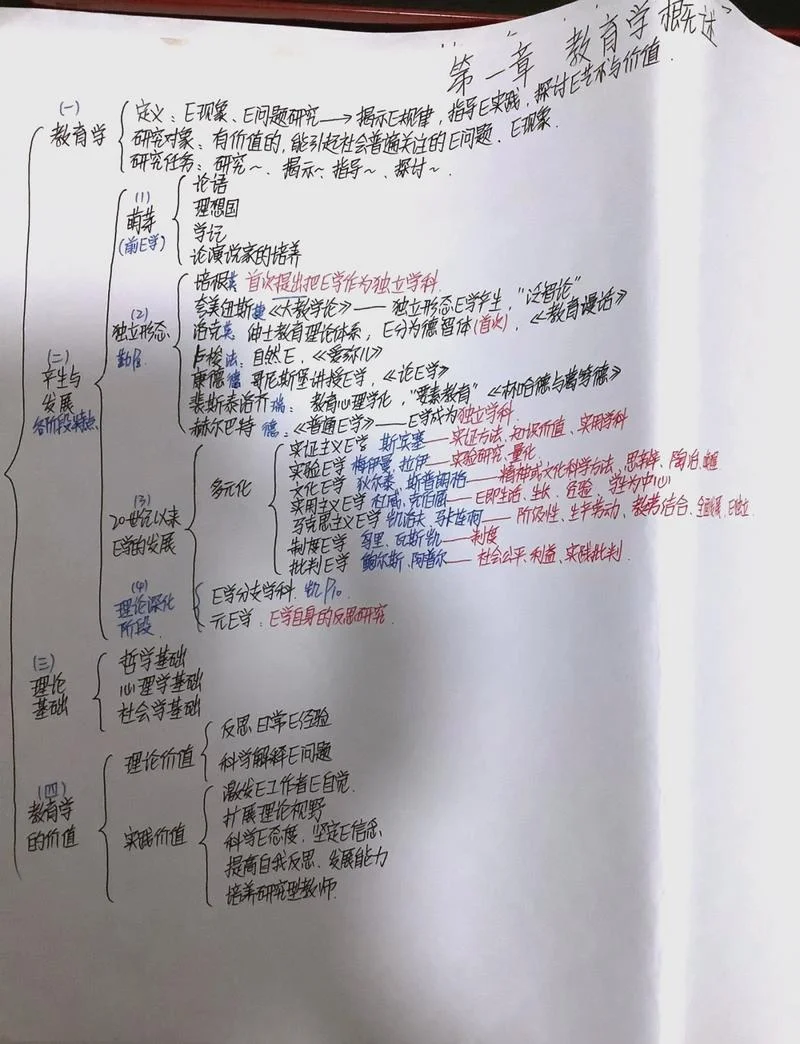 第一章 教育学概述
(一)
教育学
定义：E现象、E问题研究→揭示E规律，指导E实践，探讨E艺术与价值.
研究对象：有价值的，能引起社会普遍关注的E问题、E现象.
研究任务：研究~、揭示~指导~、探讨~.
(二)
产生与
发展
各阶段特点
(1)
萌芽
(前E学)
论语
理想国
学记
论演说家的培养
(2)
独立形态
培根英 首次提出把E学作为独立学科.
夸美纽斯捷《大教学论》——独立形态E学产生，"泛智论"
洛克英 绅士教育理论体系，E分为德智体(首次)，《教育漫话》
卢梭法：自然E，《爱弥儿》
康德德 哥尼斯堡讲授E学，《论E学》
裴斯泰洛齐瑞：教育心理学化，"要素教育"《林哈德与葛笃德》
赫尔巴特 德：《普通E学》——E学成为独立学科.
(3)
20世纪以来
E学的发展
多元化
实证主义E学 斯宾塞——实证方法、知识价值、实用学科
实验E学 梅伊曼、拉伊——实验研究、量化
文化E学 狄尔泰、斯普朗格——精神或文化科学方法、陶冶、唤醒
实用主义E学 杜威、克伯屈——E即生活、生长、经验、学生为中心
马克思主义E学 凯洛夫、马卡连柯——阶级性、生产劳动、教劳结合、
制度E学 瓦斯凯——制度
批判E学 鲍尔斯、阿普尔——社会公平、利益、实践批判.
(4)
理论深化
阶段.
E学分支学科.
元E学：E学自身的反思研究.
(三)
理论
基础
哲学基础
心理学基础
社会学基础
(四)
教育学
的价值
理论价值
反思日常E经验
科学解释E问题
实践价值
激发E工作者E自觉.
扩展理论视野
科学E态度，坚定E信念
提高自我反思、发展能力
培养研究型教师.